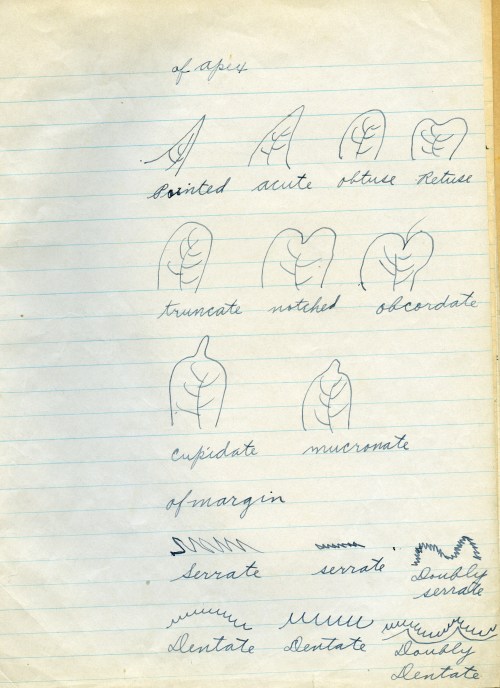 of apex
Pointed acute obtuse Retuse
truncate notched obcordate
cupidate mucronate
of margin
Serrate serrate Doubly
serrate
Dentate Dentate Doubly
Dentate